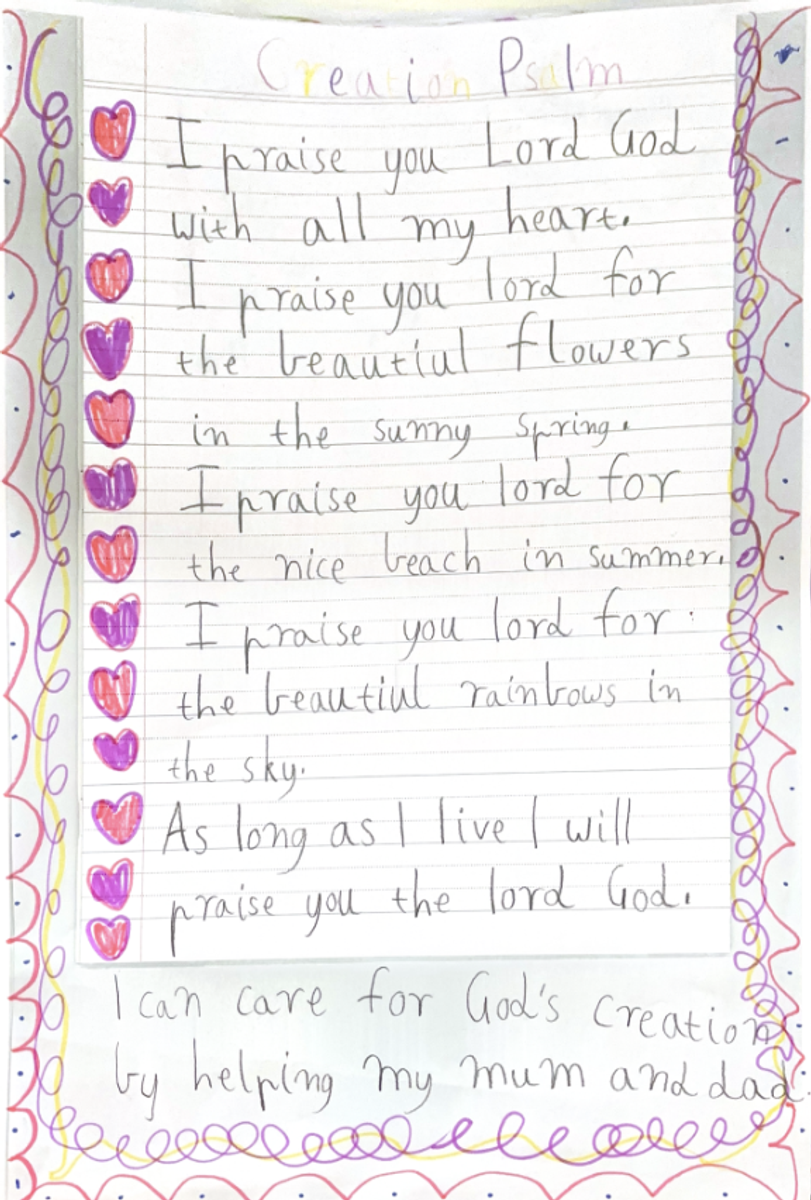 Creation Psalm
I praise you Lord God
with all my heart.
I praise you lord for
the beautiul flowers
in the sunny spring.
I praise you lord for
the nice beach in summer.
I praise you lord for
the beautiul rainbows in
the sky.
As long as I live I will
praise you the lord God.
I can care for God's creation
by helping my mum and dad.